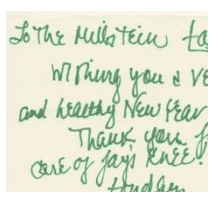 To The Millstein
Wishing you a VE
and healthy New Year
Thank you f
care of Jays Knee!